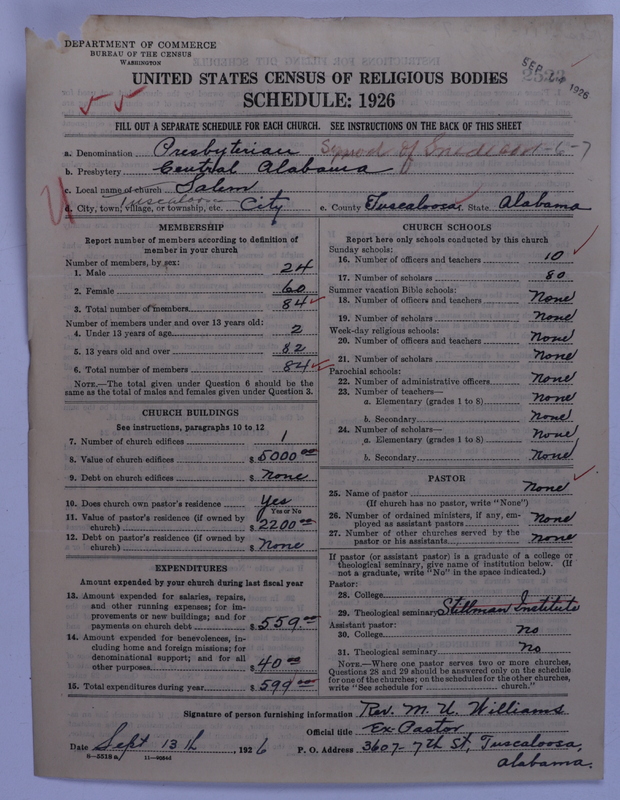 DEPARTMENT OF COMMERCE
BUREAU OF THE CENSUS
WASHINGTON
SEP 1926
UNITED STATES CENSUS OF RELIGIOUS BODIES
SCHEDULE: 1926
FILL OUT A SEPARATE SCHEDULE FOR EACH CHURCH. SEE INSTRUCTIONS ON THE BACK OF THIS SHEET
a. Denomination Presbyterian Synod of
b. Presbytery Central Alabama
c. Local name of church Salem
Tuscaloosa
d. City, town, village, or township, etc. City e. County Tuscaloosa, State Alabama
MEMBERSHIP
Report number of members according to definition of
member in your church
Number of members, by sex:
1. Male 24
2. Female 60
3. Total number of members 84
Number of members under and over 13 years old:
4. Under 13 years of age 2
5. 13 years old and over 82
6. Total number of members 84
NOTE.—The total given under Question 6 should be
same as the total of males and females given under Question 3.
CHURCH BUILDINGS
See instructions, paragraphs 10 to 12
7. Number of church edifices 1
8. Value of church edifices $ 5000 00
9. Debt on church edifices $ None
10. Does church own pastor's residence Yes
Yes or No
11. Value of pastor's residence (if owned by
church) $ 2200 00
12. Debt on pastor's residence (if owned by
church) $ None
EXPENDITURES
Amount expended by your church during last fiscal year
13. Amount expended for salaries, repairs,
and other running expenses; for im-
provements or new buildings; and for
payments on church debt $ 559 00
14. Amount expended for benevolences, in-
cluding home and foreign missions; for
denominational support; and for all
other purposes $ 40 00
15. Total expenditures during year $ 599 00
CHURCH SCHOOLS
Report here only schools conducted by this church
Sunday schools:
16. Number of officers and teachers 10
17. Number of scholars 80
Summer vacation Bible schools:
18. Number of officers and teachers None
19. Number of scholars None
Week-day religious schools:
20. Number of officers and teachers None
21. Number of scholars None
Parochial schools:
22. Number of administrative officers None
23. Number of teachers—
a. Elementary (grades 1 to 8) None
b. Secondary None
24. Number of scholars—
a. Elementary (grades 1 to 8) None
b. Secondary None
PASTOR
25. Name of pastor None
(If church has no pastor, write "None")
26. Number of ordained ministers, if any, em-
ployed as assistant pastors None
27. Number of other churches served by the
pastor or his assistants None
If pastor (or assistant pastor) is a graduate of a college or
theological seminary, give name of institution below. (If
not a graduate, write "No" in the space indicated.)
Pastor:
28. College
29. Theological seminary Stillman Institute
Assistant pastor:
30. College No
31. Theological seminary No
NOTE.—Where one pastor serves two or more churches,
Questions 28 and 29 should be answered only on the schedule
for one of the churches; on the schedules for the other churches,
write "See schedule for church."
Signature of person furnishing information Rev. M. U. Williams
Official title Ex Pastor
Date Sept 13th, 1926 P. O. Address 3607-7th St, Tuscaloosa,
Alabama.